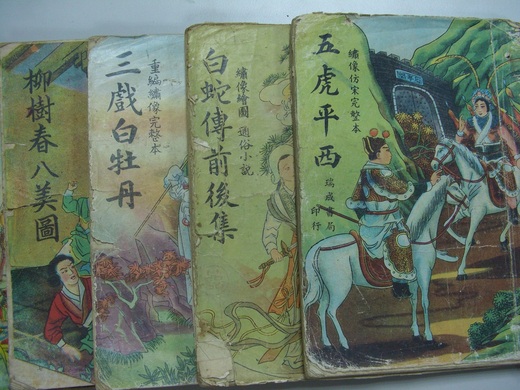 五虎平西
繡像仿宋完整本
瑞成書局
印行
白蛇傳前後集
繡像繪圖 通俗小說
三戲白牡丹
重編繡像完整本
柳樹春八美圖